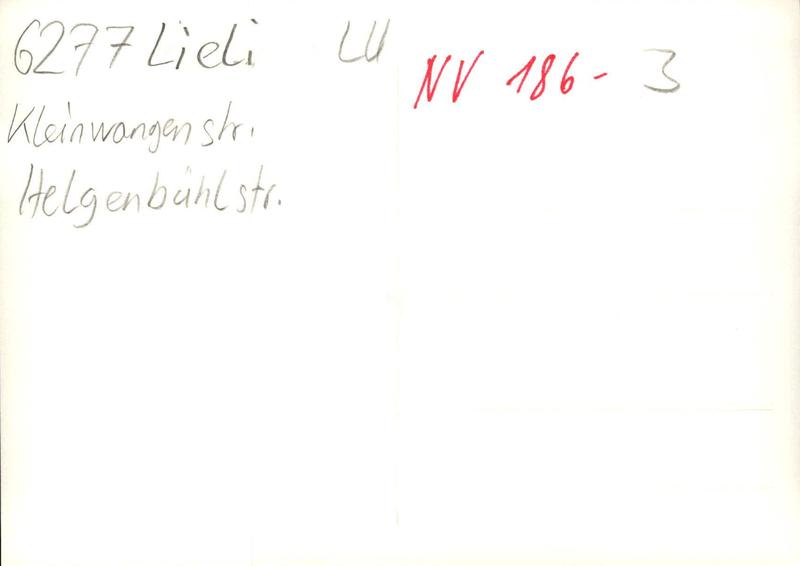 6277 Lieli LU
NV 186-3
Kleinwangenstr.
Helgenbühlstr.